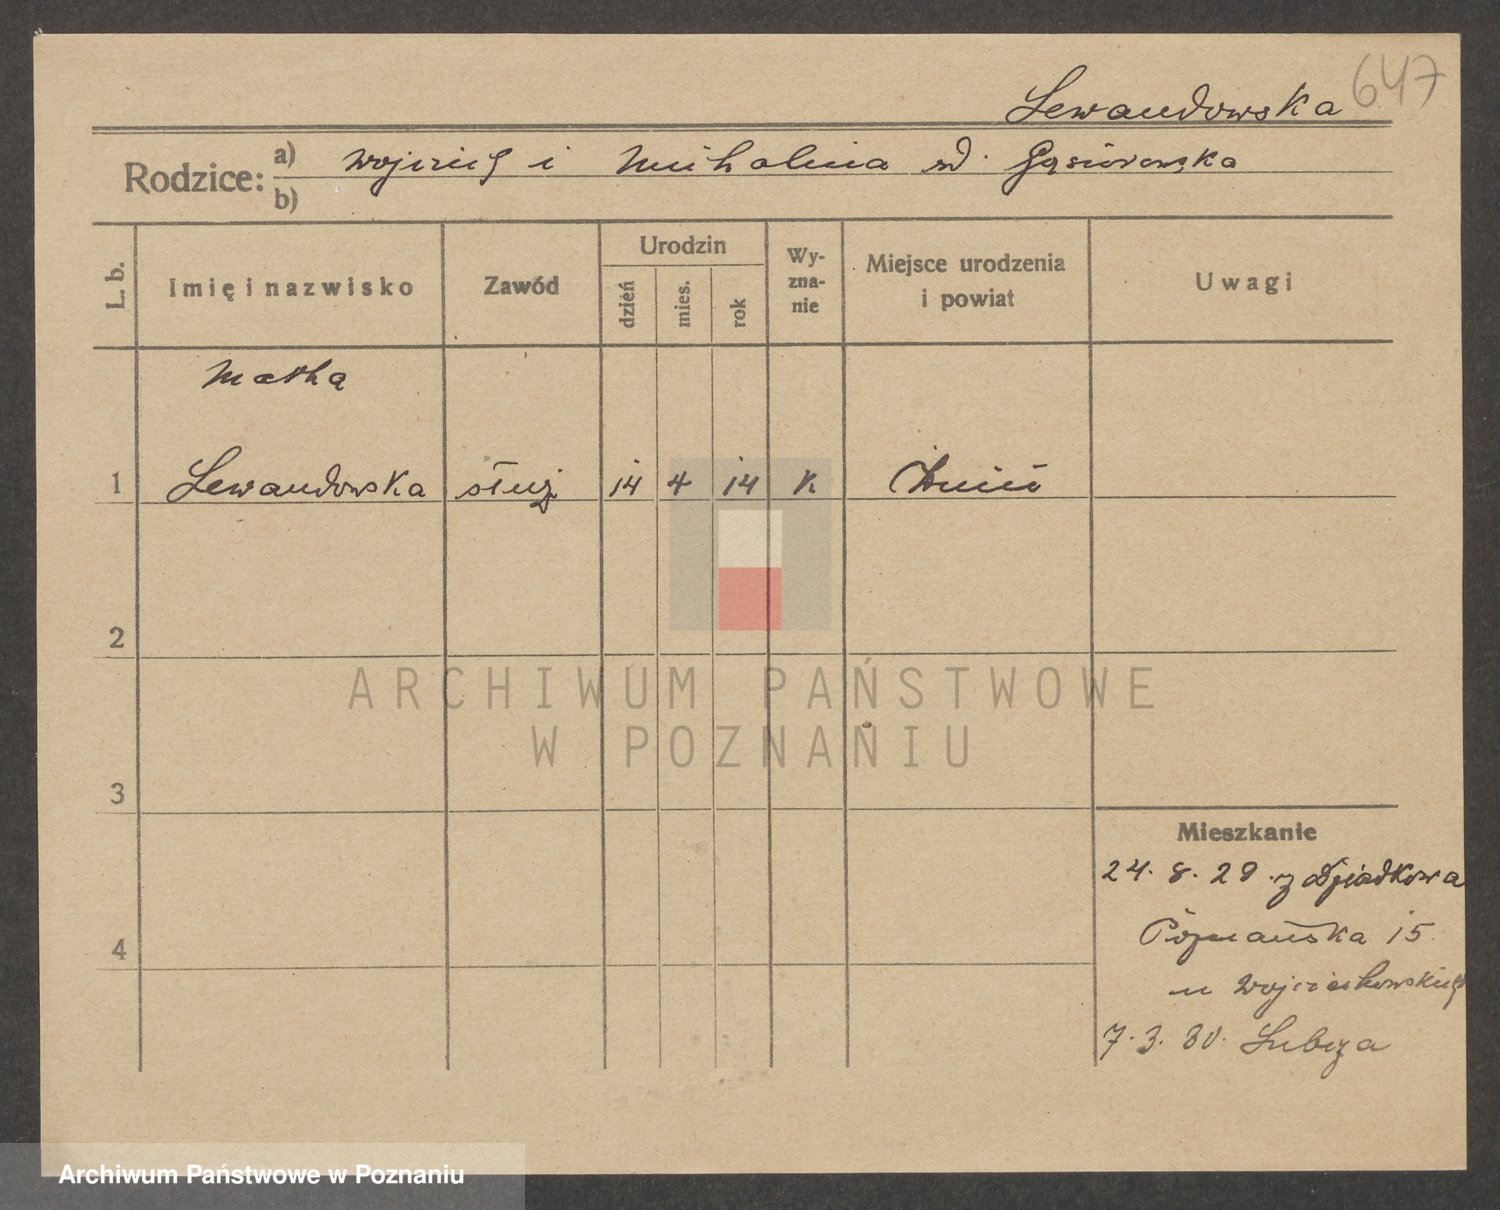 Lewandowska 647
Rodzice: a) Wojciech i Michalina d. Gąsiorowska
b)
L. b. Imię i nazwisko Zawód Urodzin dzień mies. rok Wyzna-nie Miejsce urodzenia i powiat Uwagi
1 Marta
Lewandowska służ 14 4 14 K Żnin
2
3
4
Mieszkanie
24. 8. 29 z Dziadkowa
Poznańska 15
u Wojciechowskiej
7. 3. 30. Lubcza
ARCHIWUM PAŃSTWOWE
W POZNANIU
Archiwum Państwowe w Poznaniu